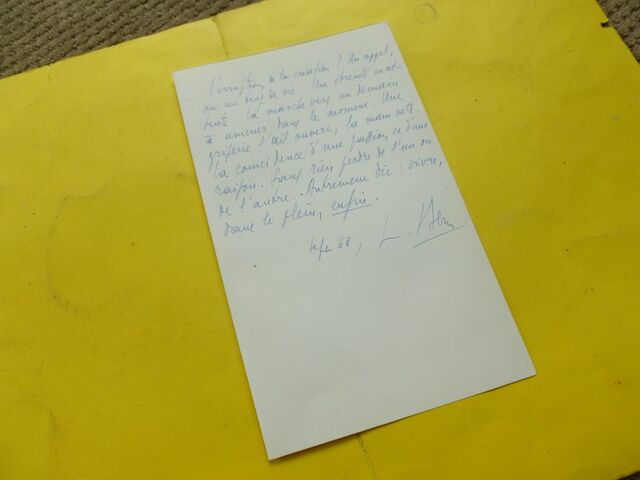 L'irruption de la création ? Un appel,
ou un trop de vie. Une
tente. La marche vers un demain
à amener dans le moment. Une
l'œil ouvert, la main
la coïncidence d'une passion et d'une
raison. Sans rien perdre de l'un ou
de l'autre. Autrement dit : vivre,
dans le plein, enfin.
68, L.